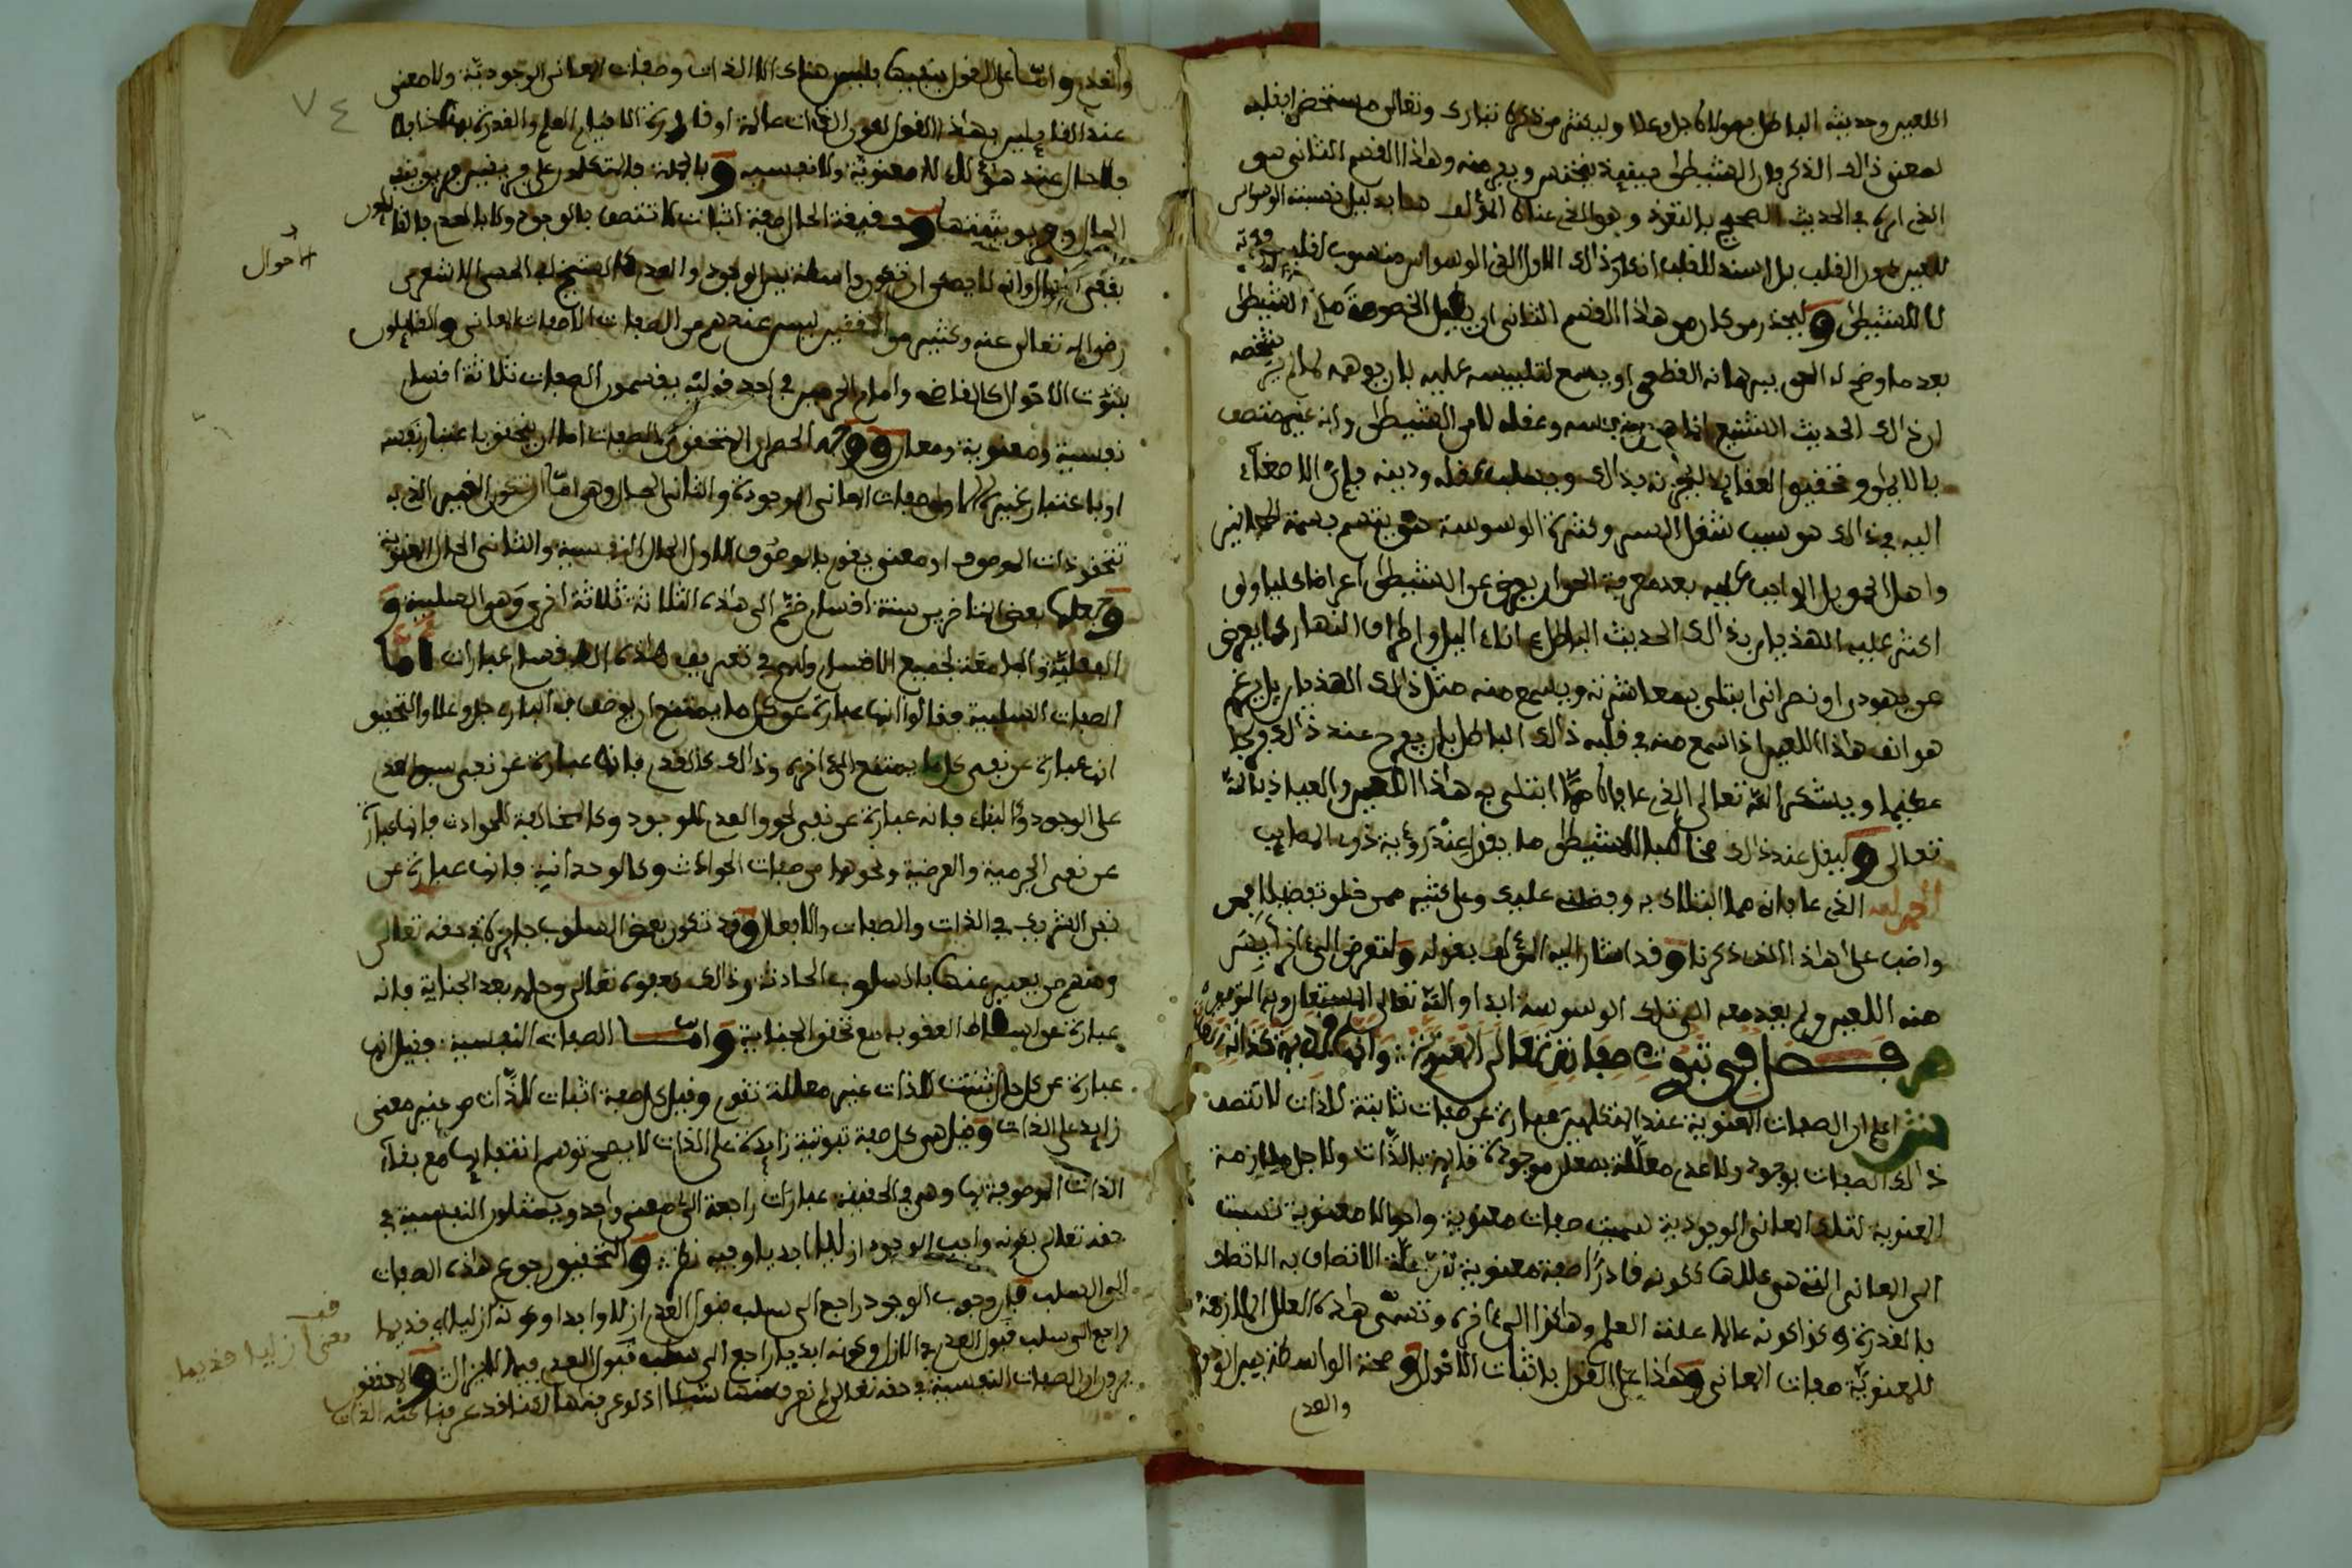 اللعين وحديثه الباطل بمولانا جل وعلا وليكثر من ذكره تبارك وتعالى مستحضرا بقلبه
لمعنى ذالك الذكر فان الشيطان حينئذ يخنس ويفر منه وهاذا القسم الثانى هو
الذى امر فى الحديث الصحيح بالتعوذ وهو الذى عناه المؤلف هنا بدليل نسبته الوسواس
للعين دون القلب بل اسند للقلب انكار ذالك الاول الذى الوسواس منسوب لقلب
لا للشيطان وليحذر من كان من هاذا القسم الثانى ان يطيل الخصومة مع الشيطان
بعد ما وضح له الحق ببرهانه القطعى او يسمع لتلبيسه عليه بان يوهمه
ان ذالك الحديث الشنيع انما هو من نفسه وعقله لا من الشيطان وانه غير متصف
بالايمان وتحقيق العقائد ليحزنه بذالك ويسلب عقله ودينه فان الاصغاء
اليه فى ذالك هو سبب شغل السر وكثرة الوسوسة حتى يتسم بسمة المجانين
واهل الخبل الواجب عليه بعد معرفة الحق ان يعرض عن الشيطان اعراضا كليا ولو
اكثر عليه الهذيان بذالك الحديث الباطل ءاناء اليل واطراف النهار كما يعرض
عن يهودى او نصرانى ابتلى بمعاشرته ويسمع منه مثل ذالك الهذيان بل يرغم
هو انف هاذا اللعين اذا سمع منه فى قلبه ذالك الباطل بان يفرح عند ذالك فرحا
عظيما ويشكر الله تعالى الذى عافاه مما ابتلى به هاذا اللعين والعياذ بالله
تعالى وليقل عند ذالك مخاطبا للشيطان ما يقول عند رؤية ذوى المصايب
الحمد لله الذى عافانى مما ابتلاك به وفضلنى عليك وعلى كثير ممن خلق تفضيلا فمن
واضب على هاذا الذى ذكرنا وقد اشار اليه المؤلف بقوله ولتعرض الى ءاخره أيس
منه اللعين ولم يعد معه الى تلك الوسوسة ابدا والله تعالى المستعان وبه التوفيق
فصل فى ثبوت صفاته تعالى المعنوية
اعلم ان الصفات المعنوية عند المتكلمين عبارة عن صفات ثابتة للذات لا تتصف
ذالك الصفات بوجود ولا عدم معللة بمعان موجودة قائمة بالذات ولاجل ملازمة
المعنوية لتلك المعانى الوجودية سميت صفات معنوية واحوالا معنوية نسبت
الى المعانى التى هى عللها ككونه قادرا صفة معنوية علة الاتصاف به الاتصاف
بالقدرة وكذا كونه عالما علته العلم وهاكذا الى ءاخره وتسمى هاذه العلل الملازمة
للمعنوية صفات المعانى وهاذا على القول باثبات الاحوال وصحة الواسطة بين الوجود
والعدم
٧٤
والعدم واما على القول بنفيها فليس هناك الا الذات وصفات المعانى الوجودية ولا معنى
عند القايلين بهاذا القول لكون الذات عالمة او قادرة الا قيام العلم والقدرة بها
فلا حال عند هؤلاء لا معنوية ولا نفسية وبالجملة فالمتكلمون على فريقين فريق ينفى
الحال وفريق يثبتها وحقيقة الحال صفة اثبات لا تتصف بالوجود ولا بالعدم فالقائلون
بنفى الاحوال وانه لا يصح ان تكون واسطة بين الوجود والعدم كالشيخ ابى الحسن الاشعرى
رضى الله تعالى عنه وكثير من المحققين ليس عندهم من الصفات الا صفات المعانى والقائلون
بثبوت الاحوال كالقاضى وامام الحرمين فى احد قوليه يقسمون الصفات ثلاثة اقسام
نفسية ومعنوية ومعان ووجه الحصر ان المتحقق من الصفات اما ان يتحقق باعتبار نفسه
او باعتبار غيره الاول صفات المعانى الموجودة والثانى الحال وهى اما ان يكون الغير الذى به
تتحقق ذات الموصوف او معنى يقوم بالموصوف الاول الحال النفسية والثانى الحال المعنوية
وجعلها بعض المتاخرين ستة اقسام ضم الى هاذه الثلاثة ثلاثة اخرى وهو السلبية و
الفعلية والجامعة لجميع الاقسام ولهم فى تعريف هاذه الاقسام عبارات أما
الصفات السلبية فقالوا انها عبارة عن كل ما يمتنع ان يوصف به الباري جل وعلا والتحقيق
انها عبارة عن نفى كل ما يمتنع الى ءاخره وذالك كالقدم فانه عبارة عن نفى سبق العدم
على الوجود وكالبقاء فانه عبارة عن نفى لحوق العدم للوجود وكالمخالفة للحوادث فانها عبارة
عن نفى الجرمية والعرضية ونحوها من صفات الحوادث وكالوحدانية فانها عبارة عن
نفى الشريك فى الذات والصفات والافعال وقد تكون بعض السلوب جايزة فى حقه تعالى
ومنهم من يعبر عنها بالسلوب الحادثة وذالك كعفوه تعالى وحلمه بعد الجناية فانه
عبارة عن اسقاط العقوبة مع تحقق الجناية واما الصفات النفسية فقيل انها
عبارة عن كل حال ثبتت للذات غير معللة تقوم وقيل كل صفة اثبات للذات من غير معنى
زايد على الذات وقيل هى كل صفة ثبوتية زايدة على الذات لا يصح توهم انتفايها مع بقاء
الذات الموصوفة بها وهى فى الحقيقة عبارات راجعة الى معنى واحد ويمثلون النفسية فى
حقه تعالى بكونه واجب الوجود ازليا ابديا وفيه نظر والتحقيق رجوع هاذه الصفات
الى السلب فان وجوب الوجود راجع الى سلب قبول العدم ازلا وابدا وكونه ازليا اى قديما
راجع الى سلب قبول العدم فى الازل وكونه ابديا راجع الى سلب قبول العدم فيما لا يزال والمحققون
يرون ان الصفات النفسية فى حقه تعالى لم نعرف منها شيئا اذ لو عرفناها لكنا قد عرفنا كنه الذات
الاحوال
معنى ازليا قديما